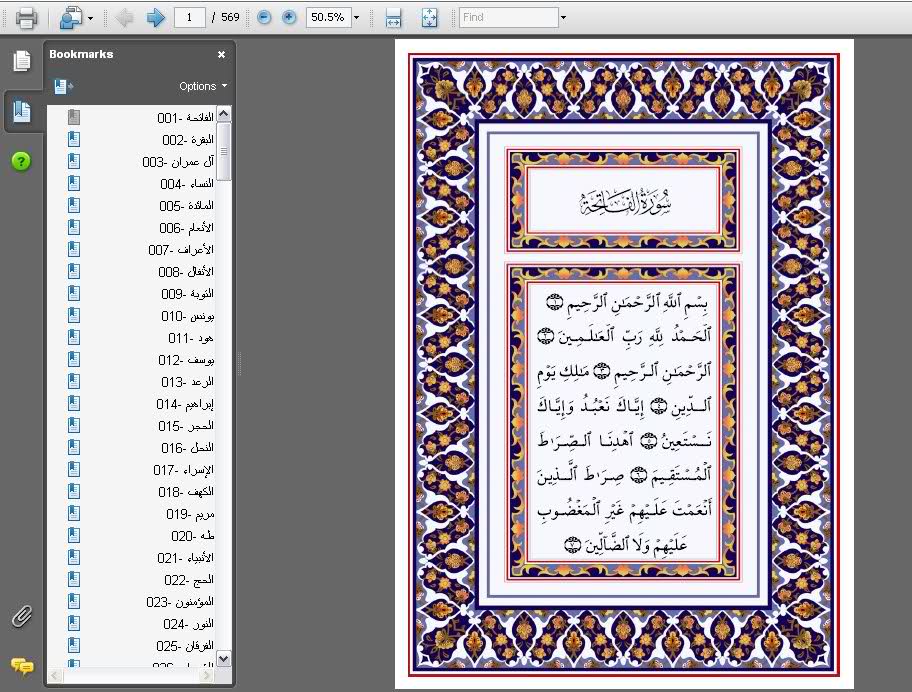 1 / 569
50.5%
Find
Bookmarks
Options
الفاتحة -001
البقرة -002
آل عمران -003
النساء -004
المائدة -005
الأنعام -006
الأعراف -007
الأنفال -008
التوبة -009
يونس -010
هود -011
يوسف -012
الرعد -013
إبراهيم -014
الحجر -015
النحل -016
الإسراء -017
الكهف -018
مريم -019
طه -020
الأنبياء -021
الحج -022
المؤمنون -023
النور -024
الفرقان -025
سُورَةُ الفَاتِحَةِ
بِسْمِ ٱللَّهِ ٱلرَّحْمَٰنِ ٱلرَّحِيمِ ١
ٱلْحَمْدُ لِلَّهِ رَبِّ ٱلْعَٰلَمِينَ ٢
ٱلرَّحْمَٰنِ ٱلرَّحِيمِ ٣ مَٰلِكِ يَوْمِ
ٱلدِّينِ ٤ إِيَّاكَ نَعْبُدُ وَإِيَّاكَ
نَسْتَعِينُ ٥ ٱهْدِنَا ٱلصِّرَٰطَ
ٱلْمُسْتَقِيمَ ٦ صِرَٰطَ ٱلَّذِينَ
أَنْعَمْتَ عَلَيْهِمْ غَيْرِ ٱلْمَغْضُوبِ
عَلَيْهِمْ وَلَا ٱلضَّآلِّينَ ٧